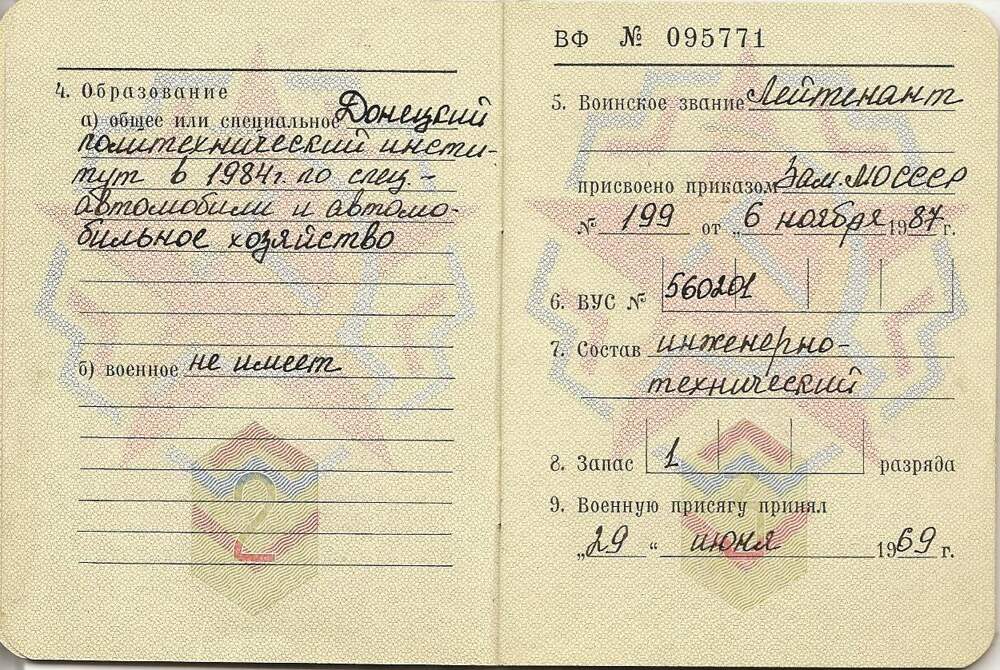 4. Образование
а) общее или специальное Донецкий
политехнический инсти-
тут в 1984г. по спец.-
автомобили и автомо-
бильное хозяйство
б) военное не имеет
2
ВФ № 095771
5. Воинское звание Лейтенант
присвоено приказом Зам.МОСССР
№ 199 от „6 ноября 1987 г.
6. ВУС № 560201
7. Состав инженерно-
технический
8. Запас 1 разряда
9. Военную присягу принял
„29“ июня 1969 г.